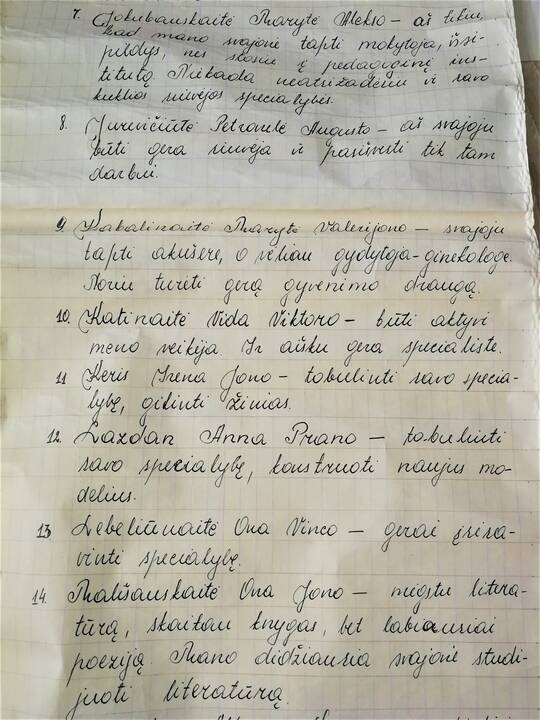 7. Jokubauskaitė Marytė Alekso – aš tikiu,
kad mano svajonė tapti mokytoja, išsi-
pildys, nes stosiu į pedagoginį ins-
titutą. Niekada neatsižadėsiu ir savo
kuklios siuvėjos specialybės.
8. Jurevičiūtė Petronelė Augusto – aš svajoju
būti gera siuvėja ir pasišvęsti tik tam
darbui.
9. Kabalinaitė Marytė Valerijono – svajoju
tapti akušere, o vėliau gydytoja-ginekologe.
Noriu turėti gerą gyvenimo draugą.
10. Katinaitė Vida Viktoro – būti aktyvi
meno veikėja. Ir aišku gera specialiste.
11 Keris Irena Jono – tobulinti savo specia-
lybę, gilinti žinias.
12. Lazdan Anna Prano – tobulinti
savo specialybę, konstruoti naujus mo-
delius.
13 Lebeliūnaitė Ona Vinco – gerai įsisa-
vinti specialybę.
14. Mališauskaitė Ona Jono – mėgstu litera-
tūrą, skaitau knygas, bet labiausiai
poeziją. Mano didžiausia svajonė studi-
juoti literatūrą.